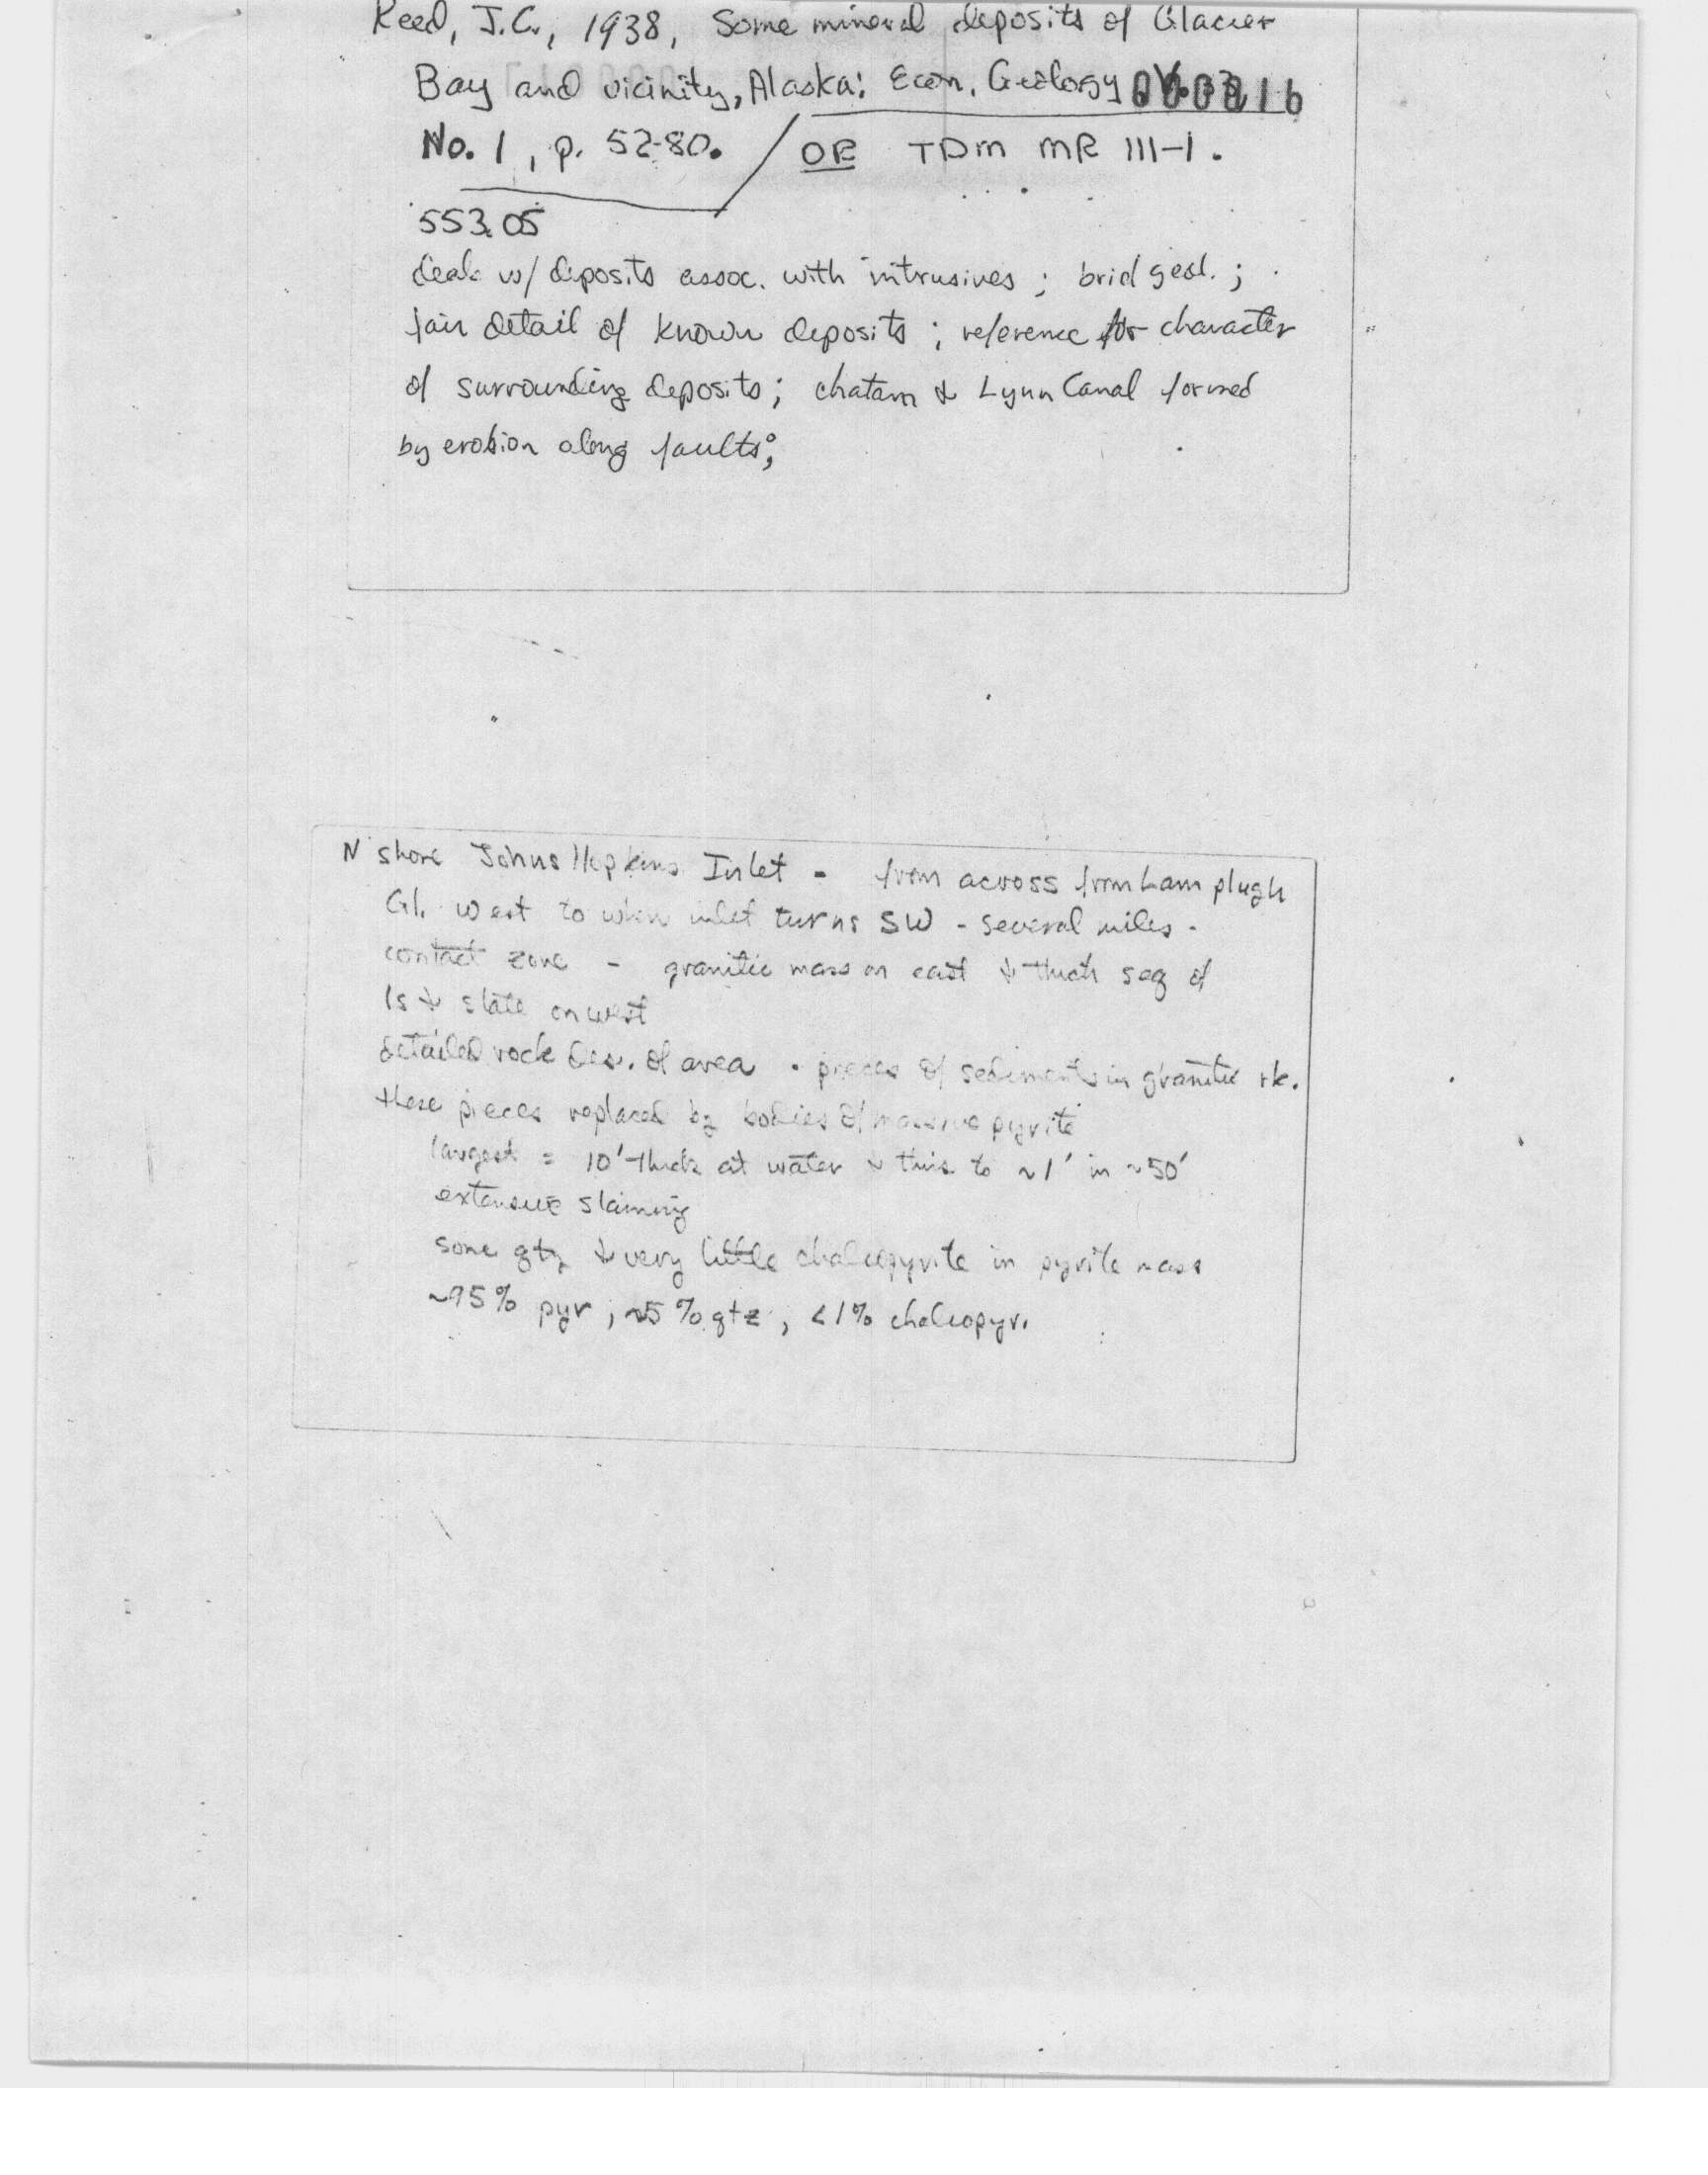 Reed, J.C., 1938, Some mineral deposits of Glacier
Bay and vicinity, Alaska: Econ. Geology
No. 1, p. 52-80. / OR TDM MR 111-1.
553.05
deals w/ deposits assoc. with intrusives; brief geol.;
fair detail of known deposits; reference for character
of surrounding deposits; chatam & Lynn Canal formed
by erosion along faults;
N shore Johns Hopkins Inlet - from across from Lamplugh
Gl. west to when inlet turns SW - several miles -
contact zone - granitic mass on east & thick seq of
ls & slate on west
detailed rock des. of area - pieces of sediments in granitic rk.
these pieces replaced by bodies of massive pyrite
largest = 10' thick at water & thins to ~1' in ~50'
extensive staining
some qtz & very little chalcopyrite in pyrite mass
~95% pyr; ~5% qtz, <1% chalcopyr.